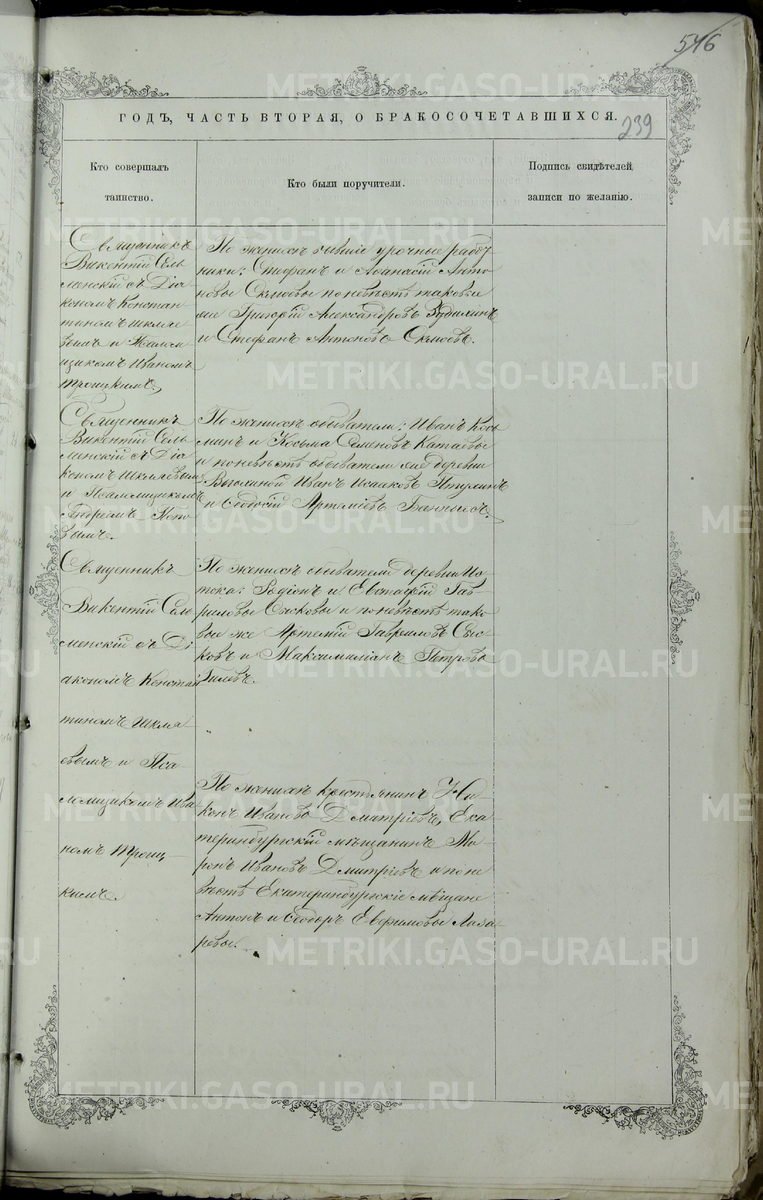 546
ГОДЪ, ЧАСТЬ ВТОРАЯ, О БРАКОСОЧЕТАВШИХСЯ.
239
Кто совершалъ
таинство.
Кто были поручители.
Подпись свидѣтелей
записи по желанію.
Священникъ
Викентій Сель
менскій съ Діа
кономъ Констан
тиномъ Шкляе
вымъ и Псалом
щикомъ Иваномъ
Троицкимъ
По женихѣ бывшіе урочные работ
ники: Стефанъ и Афанасій Анто
новы по невѣстѣ таковые
Григорій Александровъ
и Стефанъ Антоновъ
Священникъ
Викентій Сель
менскій съ Діа
кономъ Шкляевымъ
и Псаломщикомъ
Андреемъ Попо
вымъ.
По женихѣ обыватели: Иванъ Кось
минъ и Косьма Семеновъ Катаевы
и по невѣстѣ обыватели деревни
Иванъ Исааковъ
и Ѳеодосій
Священникъ
Викентій Сель
менскій съ Ді
акономъ Констан
тиномъ Шкля
евымъ и Пса
ломщикомъ Ива
номъ Троиц
кимъ.
По женихѣ обыватели деревни
Родіонъ и Евстафій Гав
риловы и по невѣстѣ тако
вые же Артемій Гавриловъ
и Максимиліанъ Петровъ
Гилевъ.
По женихѣ крестьянинъ
Ивановъ Дмитріевъ, Ека
теринбургскій мѣщанинъ Ми
ронъ Ивановъ Дмитріевъ и по не
вѣстѣ Екатеринбургскіе мѣщане
Антонъ и Ѳеодоръ Евфимовы Лаза
ревы.
METRIKI.GASO-URAL.RU